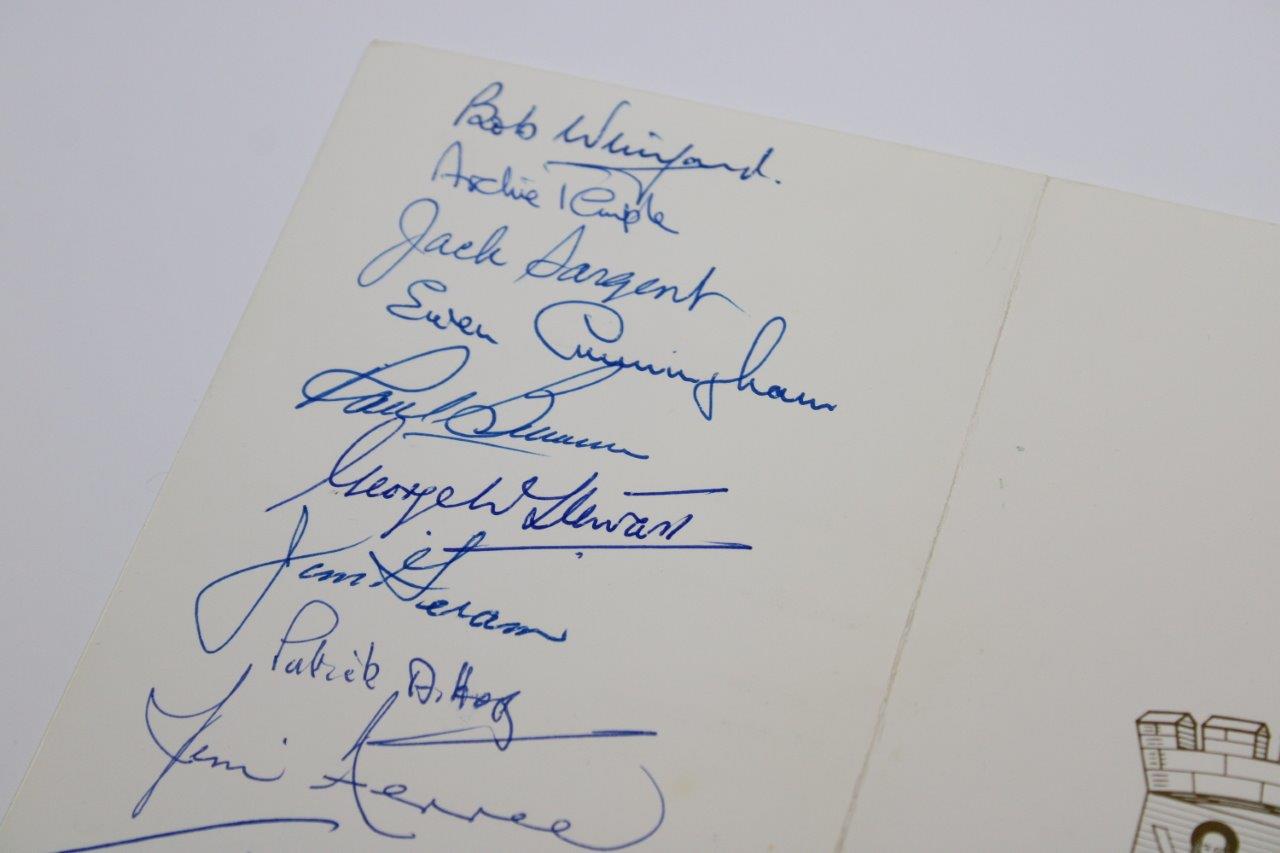 Bob Winyard.
Archie Temple
Jack Sargent
Ewen Cunningham
Paul
George W Stewart
Jim
Patrick A.
Jim Ferree